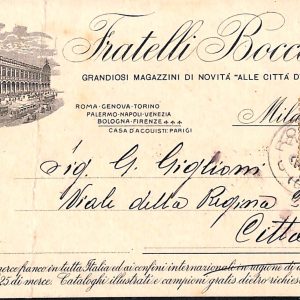 Fratelli Bocco
GRANDIOSI MAGAZZINI DI NOVITÀ "ALLE CITTÀ D'
ROMA-GENOVA-TORINO
PALERMO-NAPOLI-VENEZIA
BOLOGNA-FIRENZE
CASA D'ACQUISTI: PARIGI
Mila
Sig. G. Giglioni
Viale della Regina
Citto
merce franco in tutta Italia ed ai confini internazionali in ragione di
25 di merce. Cataloghi illustrati e campioni gratis dietro richies